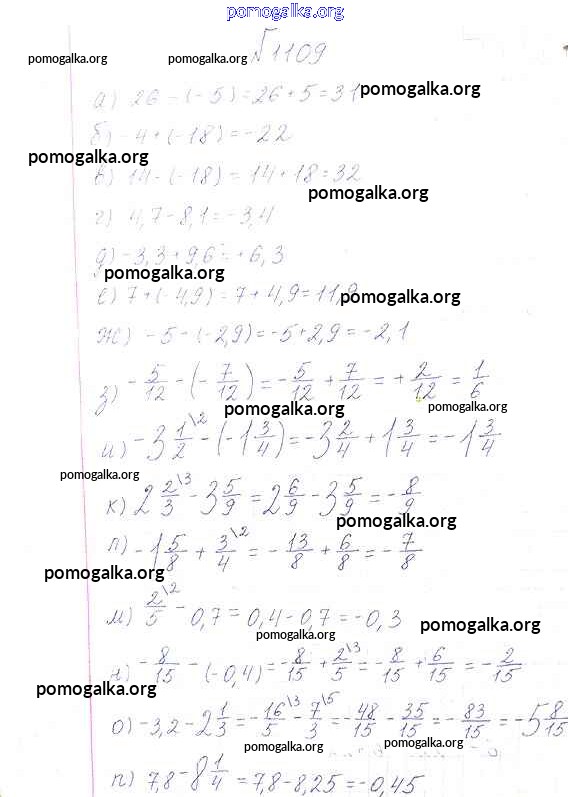 pomogalka.org
№1109
pomogalka.org pomogalka.org
а) 26 - (-5) = 26 + 5 = 31 pomogalka.org
б) -4 + (-18) = -22
pomogalka.org
в) 14 - (-18) = 14 + 18 = 32
pomogalka.org
г) 4,7 - 8,1 = -3,4
д) -3,3 + 9,6 = +6,3
pomogalka.org
е) 7 + (-4,9) = 7 + 4,9 = 11,9 pomogalka.org
ж) -5 - (-2,9) = -5 + 2,9 = -2,1
з) -5/12 - (-7/12) = -5/12 + 7/12 = +2/12 = 1/6
pomogalka.org pomogalka.org
и) -3 1/2 \2 - (-1 3/4) = -3 2/4 + 1 3/4 = -1 3/4
pomogalka.org
к) 2 2/3 \3 - 3 5/9 = 2 6/9 - 3 5/9 = -8/9
pomogalka.org
л) -1 5/8 + 3/4 \2 = -13/8 + 6/8 = -7/8
pomogalka.org
м) 2/5 \2 - 0,7 = 0,4 - 0,7 = -0,3
pomogalka.org pomogalka.org
н) -8/15 - (-0,4) = -8/15 + 2/5 \3 = -8/15 + 6/15 = -2/15
pomogalka.org
о) -3,2 - 2 1/3 = -16/5 \3 - 7/3 \5 = -48/15 - 35/15 = -83/15 = -5 8/15
pomogalka.org pomogalka.org
п) 7,8 - 8 1/4 = 7,8 - 8,25 = -0,45